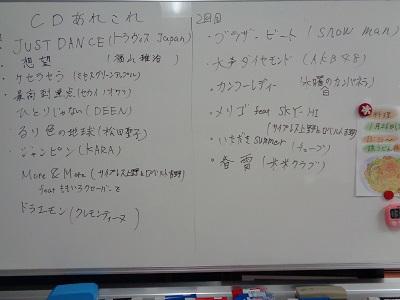 CDあれこれ
・JUST DANCE(トラヴィス Japan)
・想望 (福山雅治)
・ケセラセラ(ミセスグリーンアップル)
・最高到達点(セカイノオワリ)
ひとりじゃない(DEEN)
・るり色の地球(松田聖子)
・ジャンピン(KARA)
More & More (サイプレス上野とロベルト吉野)
feat ももいろクローバーZ
ドラエーモン(クレモンティーヌ)
2回目
・ブラザービート(snow man)
・大声ダイヤモンド(AKB48)
・カンフーレディー(水曜日のカンパネラ)
・メリゴ feat SKY-HI
(サイプレス上野とロベルト吉野)
・いただきsummer(チューブ)
・春雷(米米クラブ)
料理